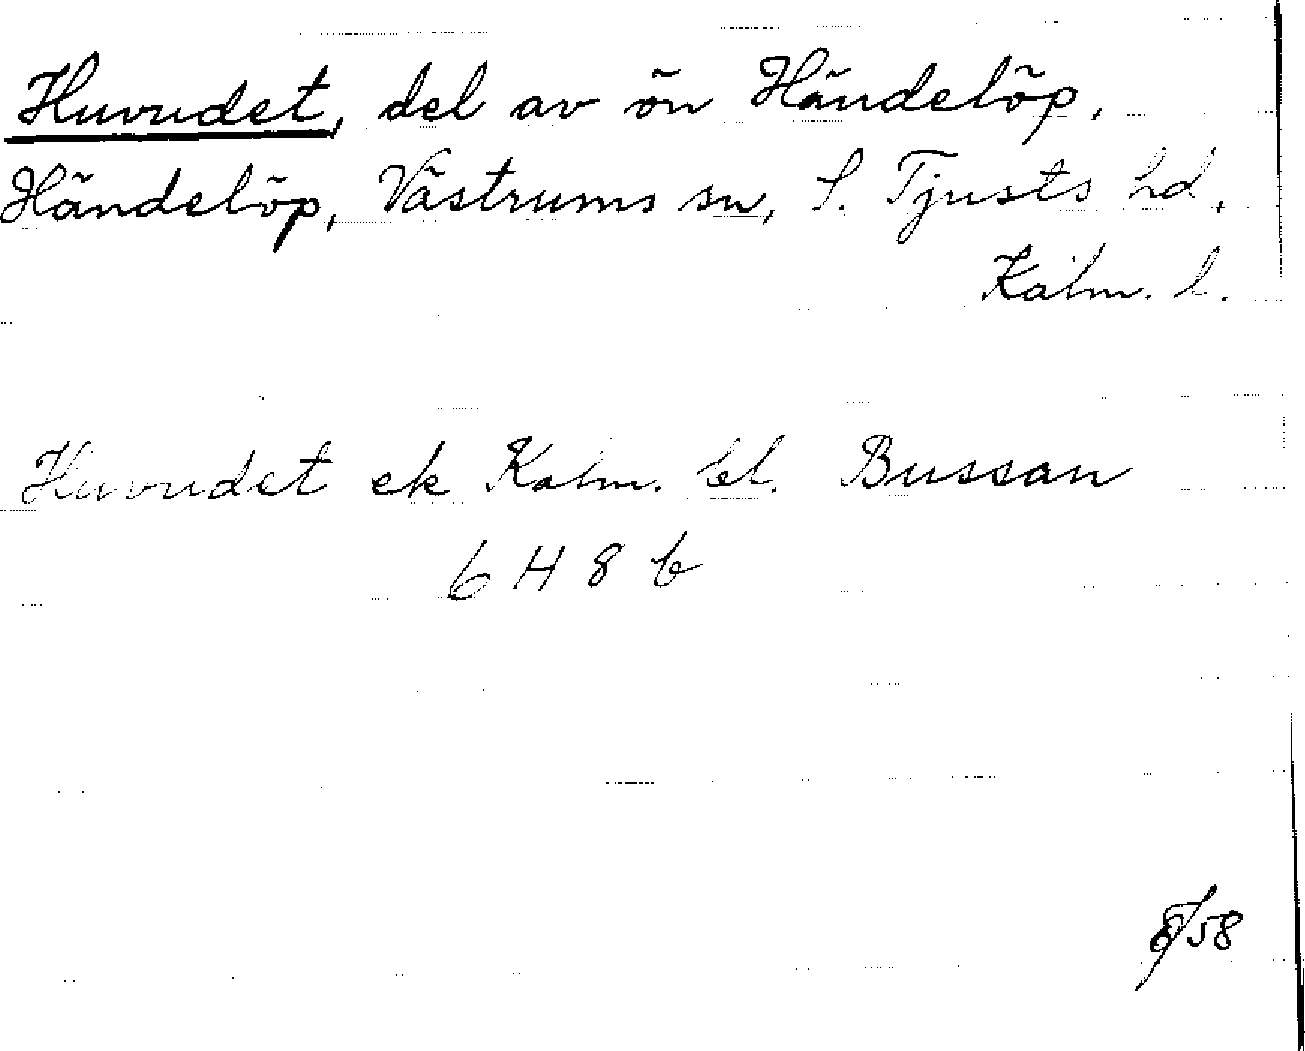 Huvudet, del av ön Händelöp,
Händelöp, Västrums sn, S. Tjusts hd,
Kalm. l.
Huvudet ek Kalm. bl. Bussan
6 H 8 b
/58